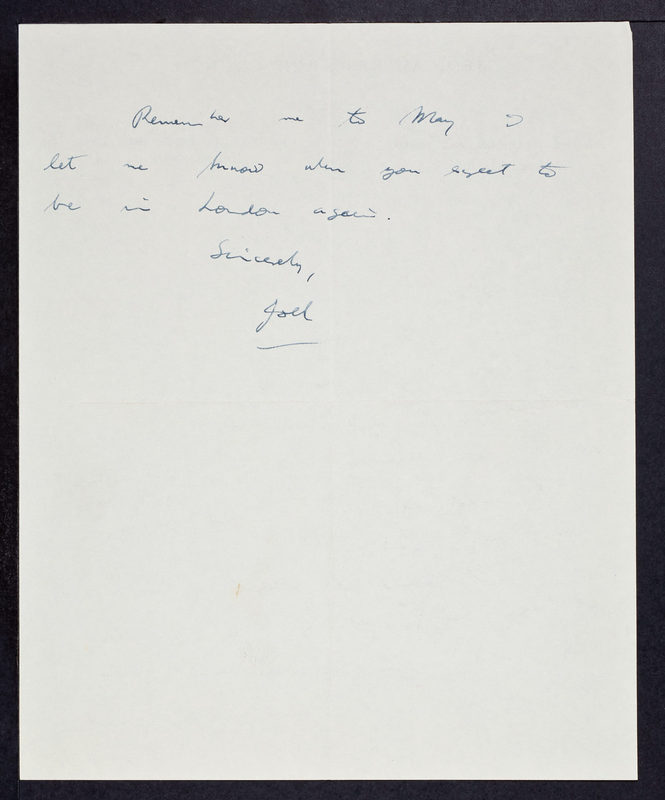 Remember me to May &
let me know when you expect to
be in London again.
Sincerely,
Joel